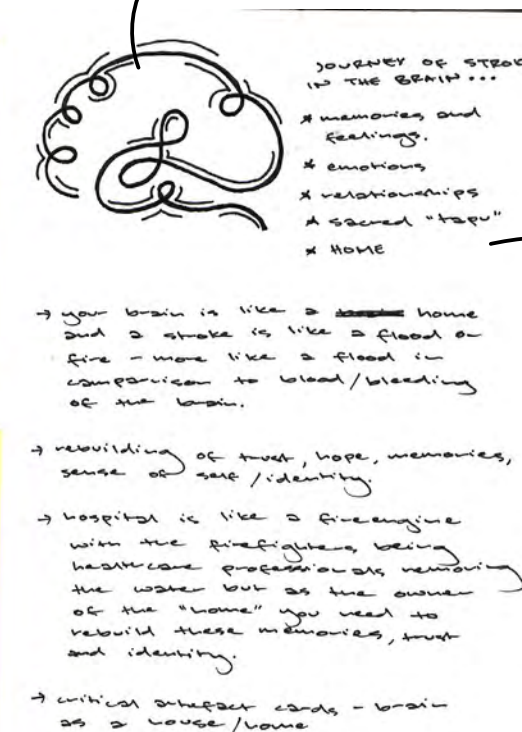 JOURNEY OF STROKE
IN THE BRAIN...
* memories and
feelings.
* emotions
* relationships
* sacred "tapu"
* HOME
→ your brain is like a home
and a stroke is like a flood or
fire - more like a flood in
comparison to blood/bleeding
of the brain.
→ rebuilding of trust, hope, memories,
sense of self/identity.
→ hospital is like a fireengine
with the firefighters being
healthcare professionals removing
the water but as the owner
of the "home" you need to
rebuild these memories, trust
and identity.
→ critical artefact cards - brain
as a house/home